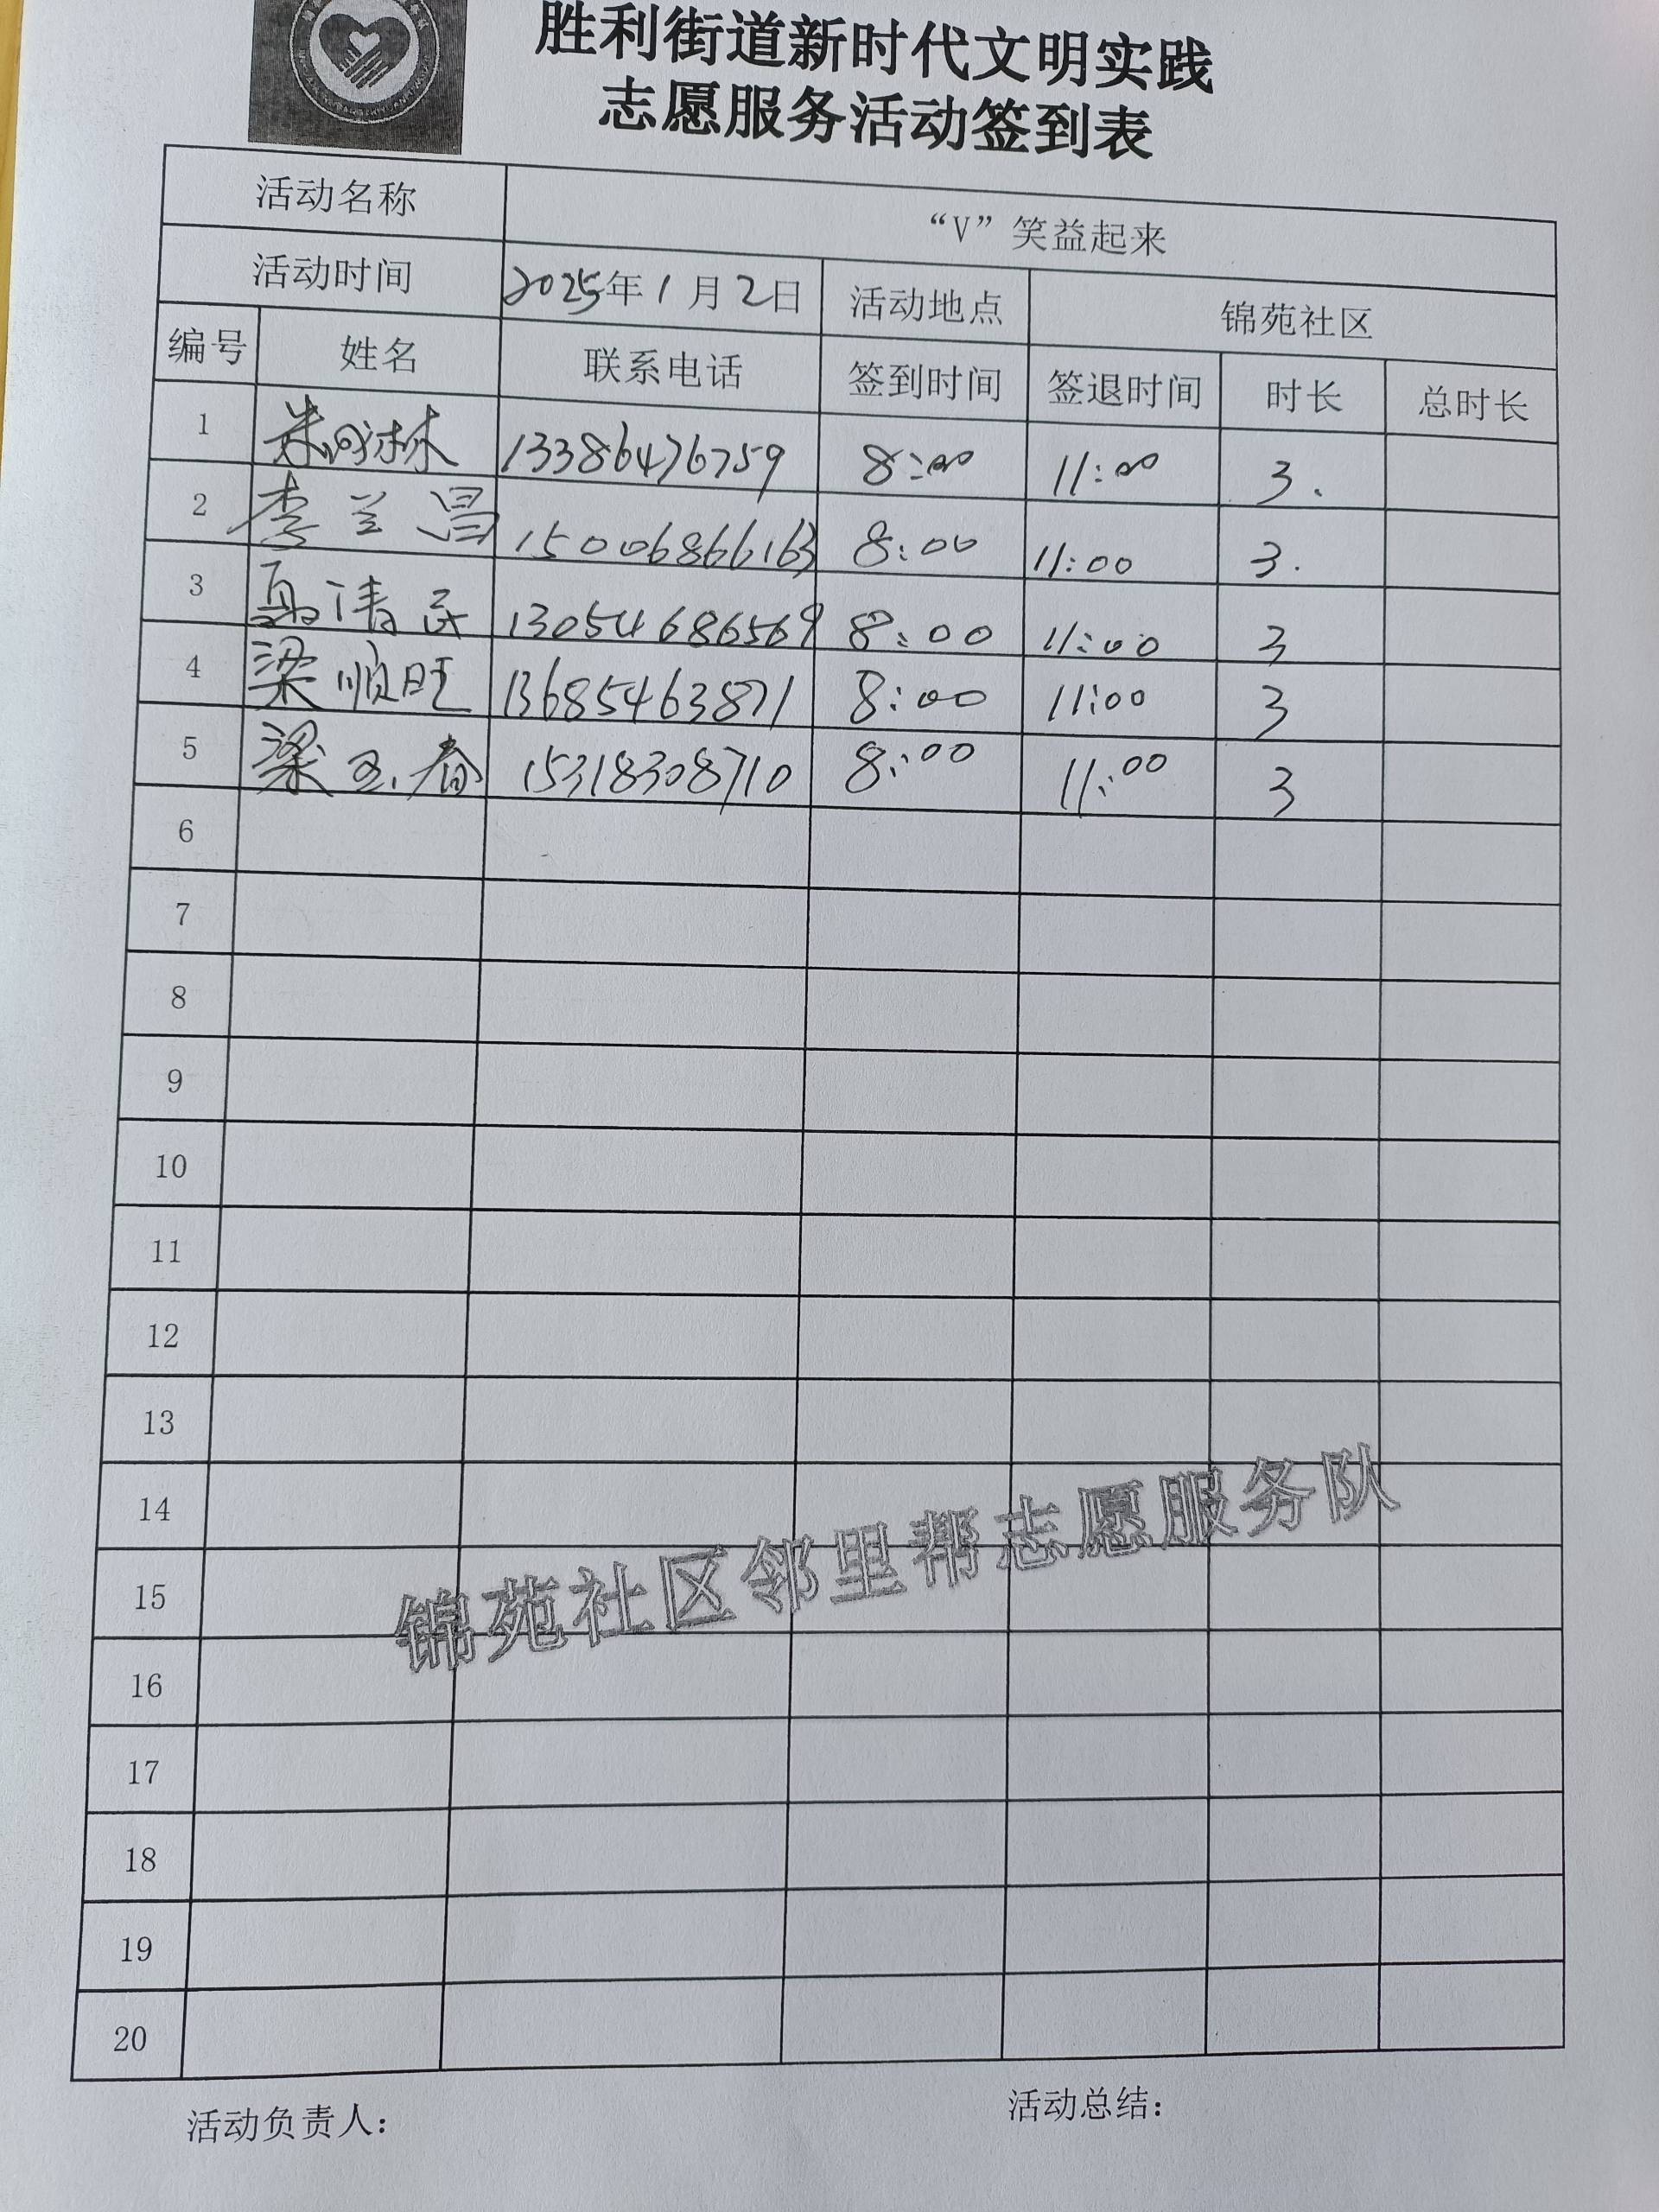 胜利街道新时代文明实践
志愿服务活动签到表
活动名称 “V”笑益起来
活动时间 2025年1月2日 活动地点 锦苑社区
编号 姓名 联系电话 签到时间 签退时间 时长 总时长
1 13386476759 8:00 11:00 3.
2 李兰昌 15006866163 8:00 11:00 3.
3 清民 13054686569 8:00 11:00 3
4 梁顺旺 13685463871 8:00 11:00 3
5 梁玉春 15318308710 8:00 11:00 3
6
7
8
9
10
11
12
13
14
15
16
17
18
19
20
锦苑社区邻里帮志愿服务队
活动负责人: 活动总结: